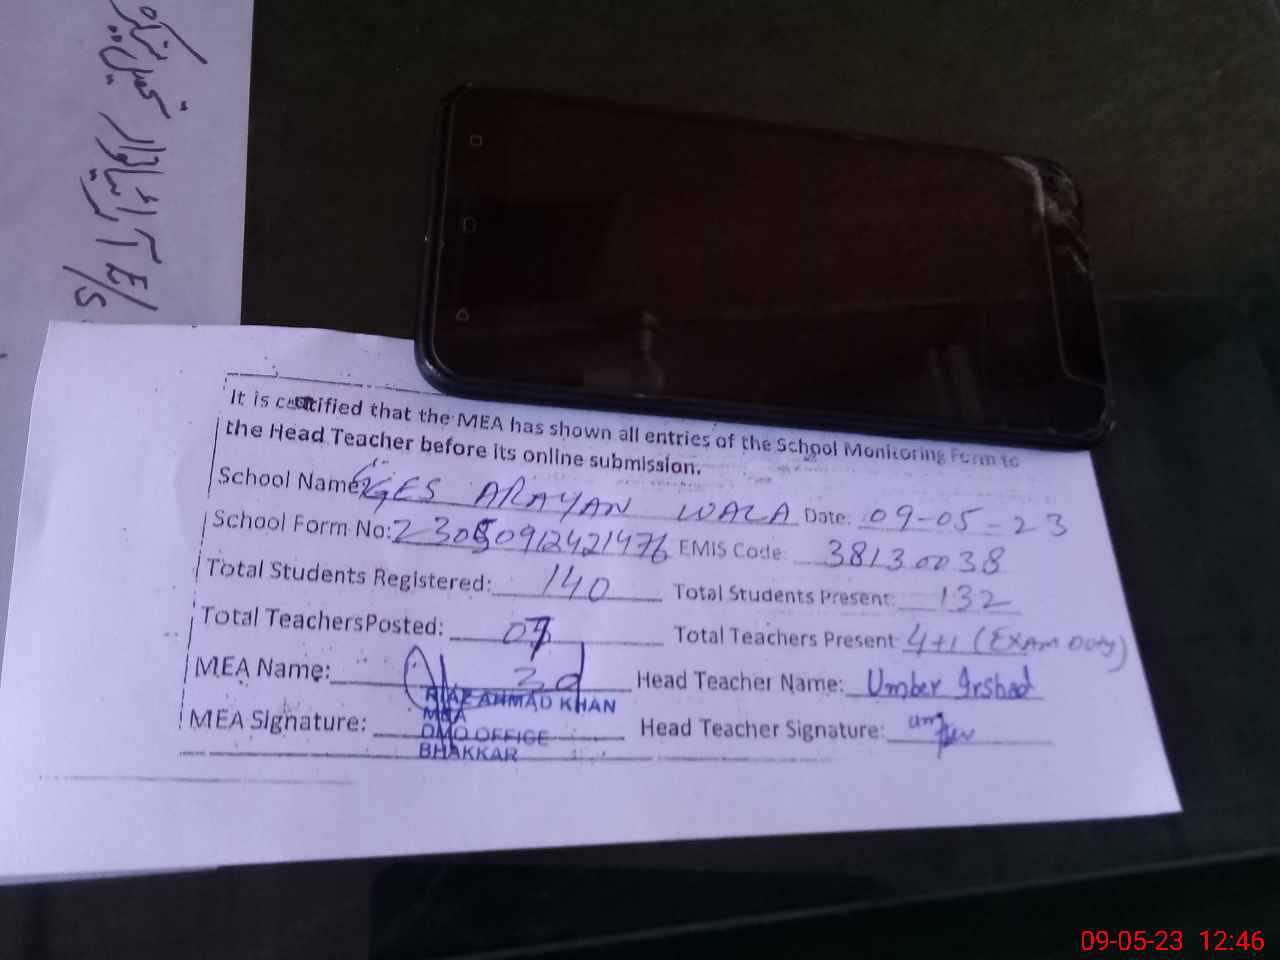 It is certified that the MEA has shown all entries of the School Monitoring Form to
the Head Teacher before its online submission.
School Name: GGES ARAYAN WALA Date: 09-05-23
School Form No: 23050912421476 EMIS Code: 38130038
Total Students Registered: 140 Total Students Present: 132
Total TeachersPosted: 07 Total Teachers Present 4+1 (Exam Duty)
MEA Name: Head Teacher Name: Umber Irshad
RIAZ AHMAD KHAN
MEA
MEA Signature: Head Teacher Signature:
DMO OFFICE
BHAKKAR
09-05-23 12:46